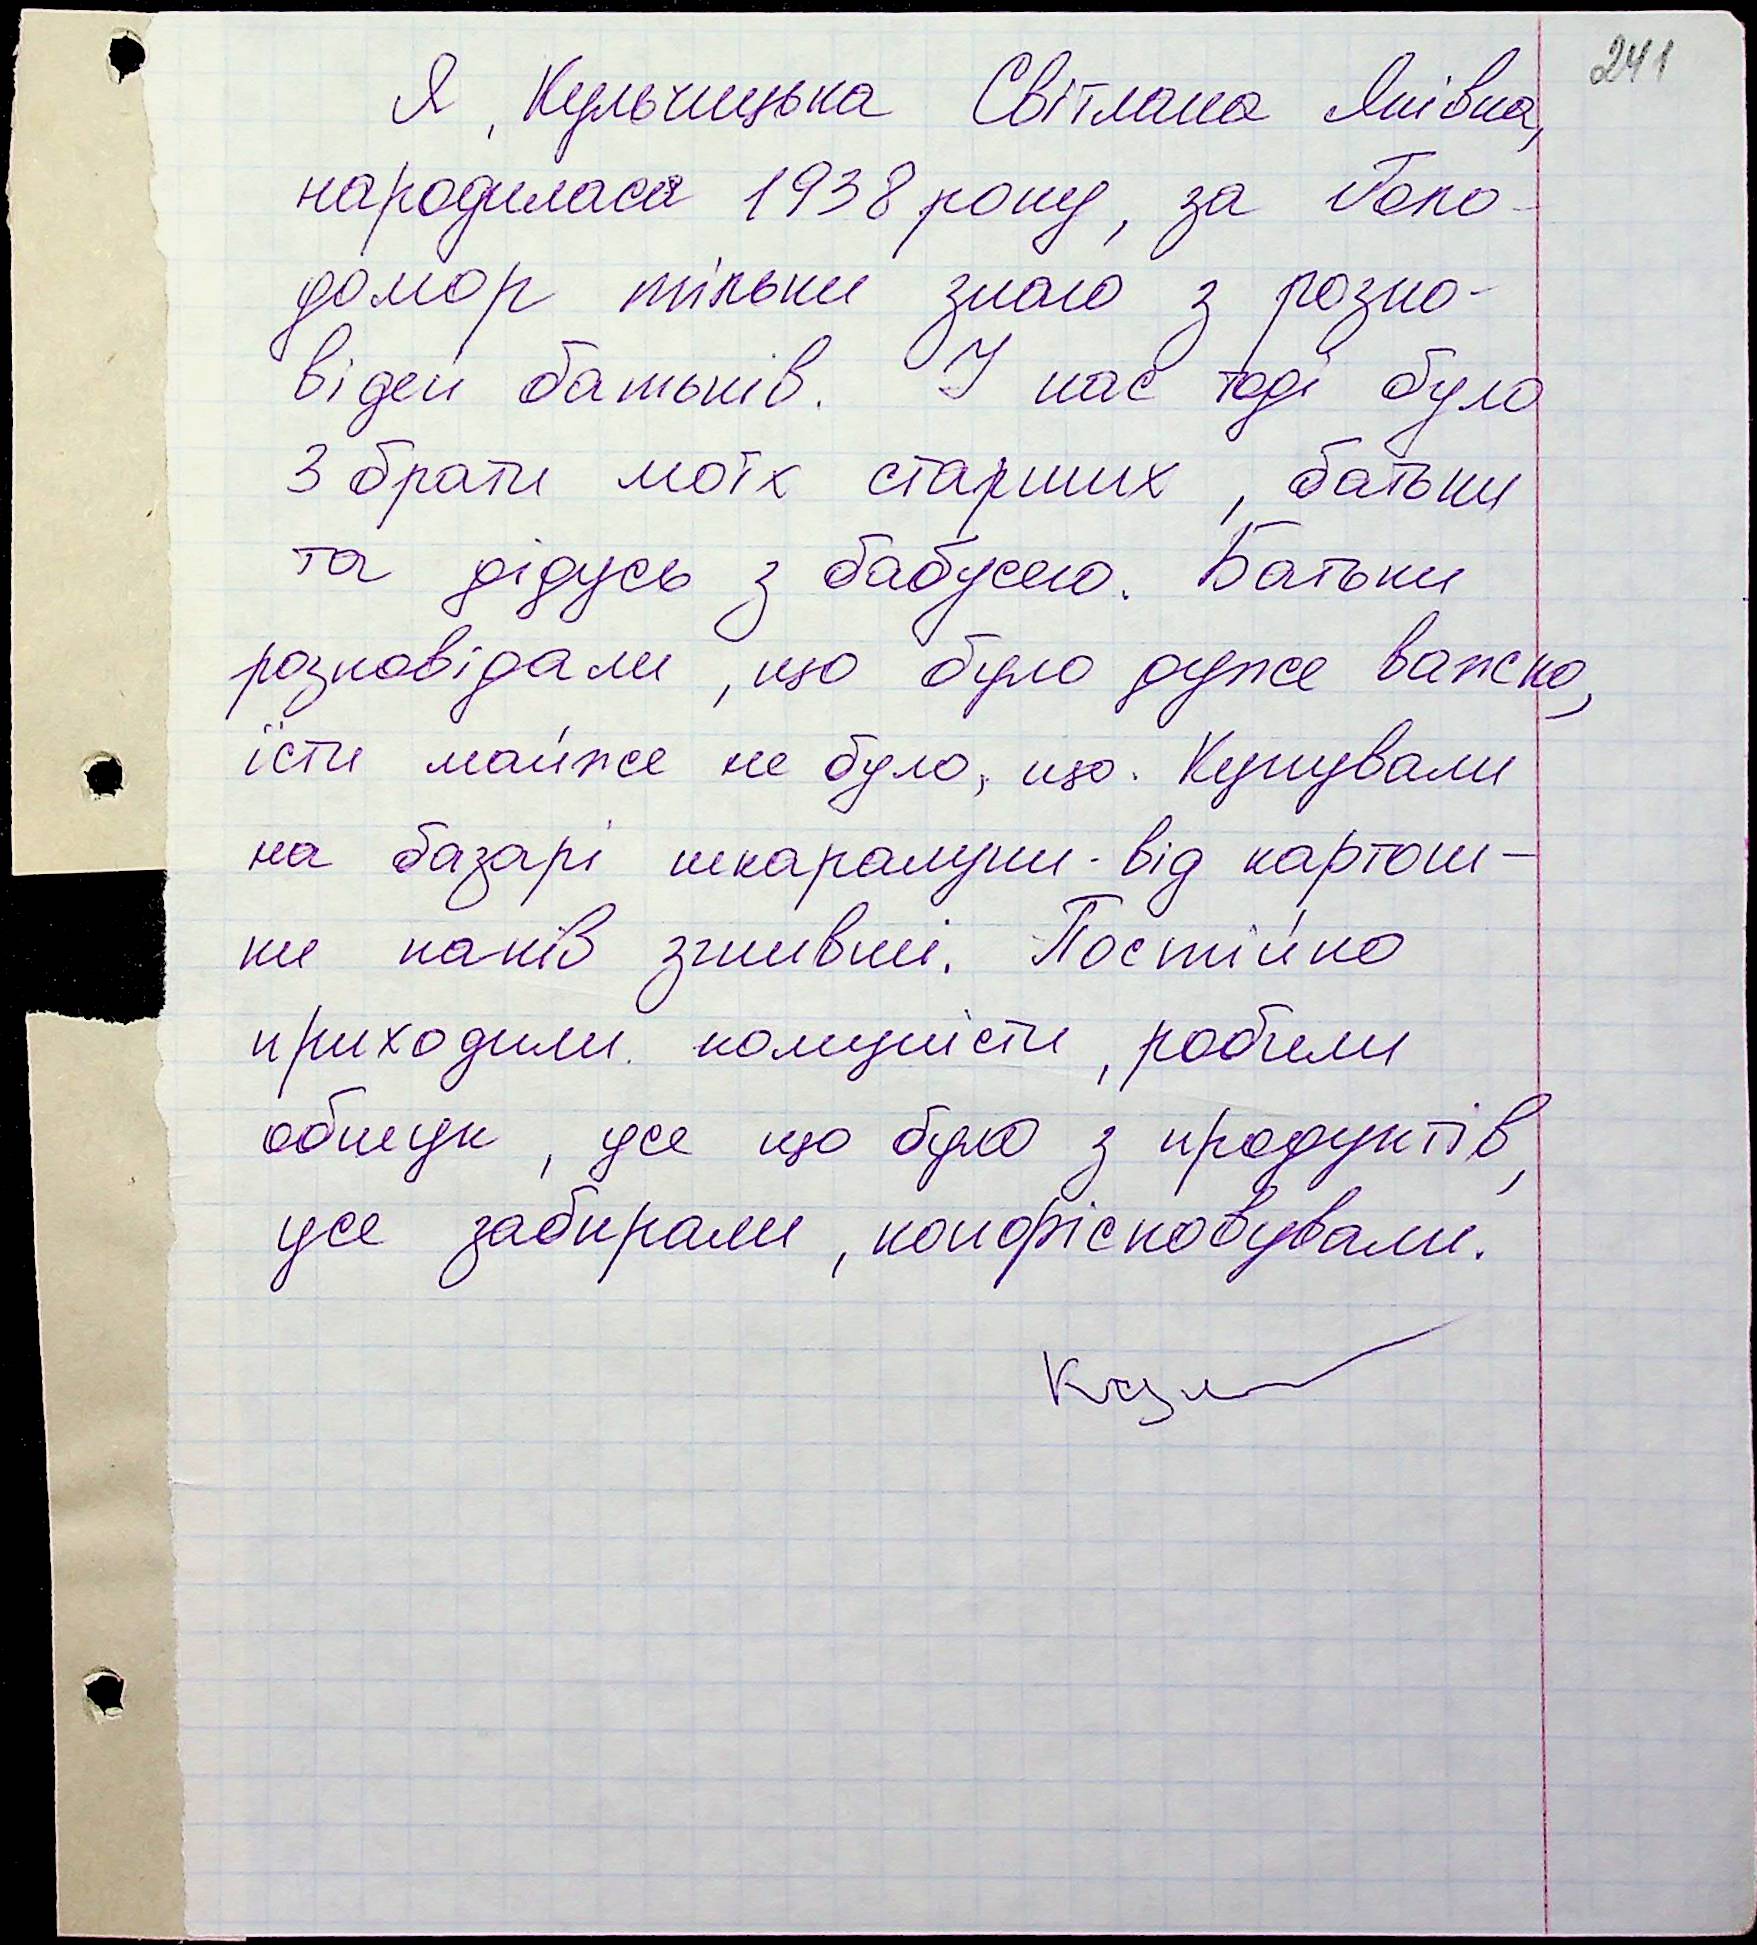 241
Я, Кульчицька Світлана Яківна,
народилася 1938 року, за Голо-
домор тільки знаю з розпо-
відей батьків. У нас тоді було
3 брати моїх старших, батьки
та дідусь з бабусею. Батьки
розповідали, що було дуже важко,
їсти майже не було, що. Купували
на базарі шкаралупи від картош-
ки напів згнивші. Постійно
приходили комуністи, робили
обшук, усе що було з продуктів,
усе забирали, конфісковували.